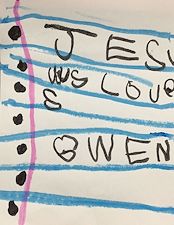 JESU
US LOVE
S
OWEN